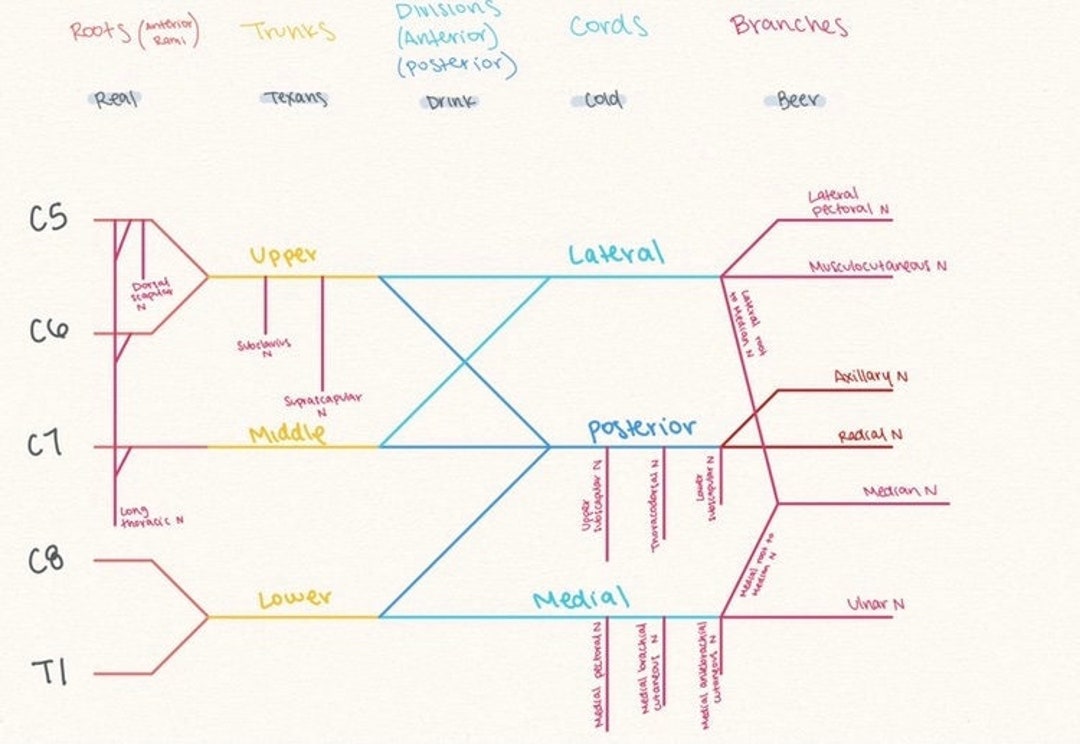 Roots (Anterior
Rami)
Trunks
Divisions
(Anterior)
(posterior)
Cords
Branches
Real
Texans
Drink
Cold
Beer
C5
C6
C7
C8
T1
Dorsal
scapular
N
Long
thoracic N
Upper
Subclavius
N
Suprascapular
N
Middle
Lower
Lateral
Posterior
Upper
subscapular N
Thoracodorsal N
Lower
subscapular N
Medial
Medial pectoral N
Medial brachial
cutaneous N
Medial antebrachial
cutaneous N
Lateral
pectoral N
Musculocutaneous N
Lateral root
to Median N
Axillary N
Radial N
Median N
Medial root to
Median N
Ulnar N